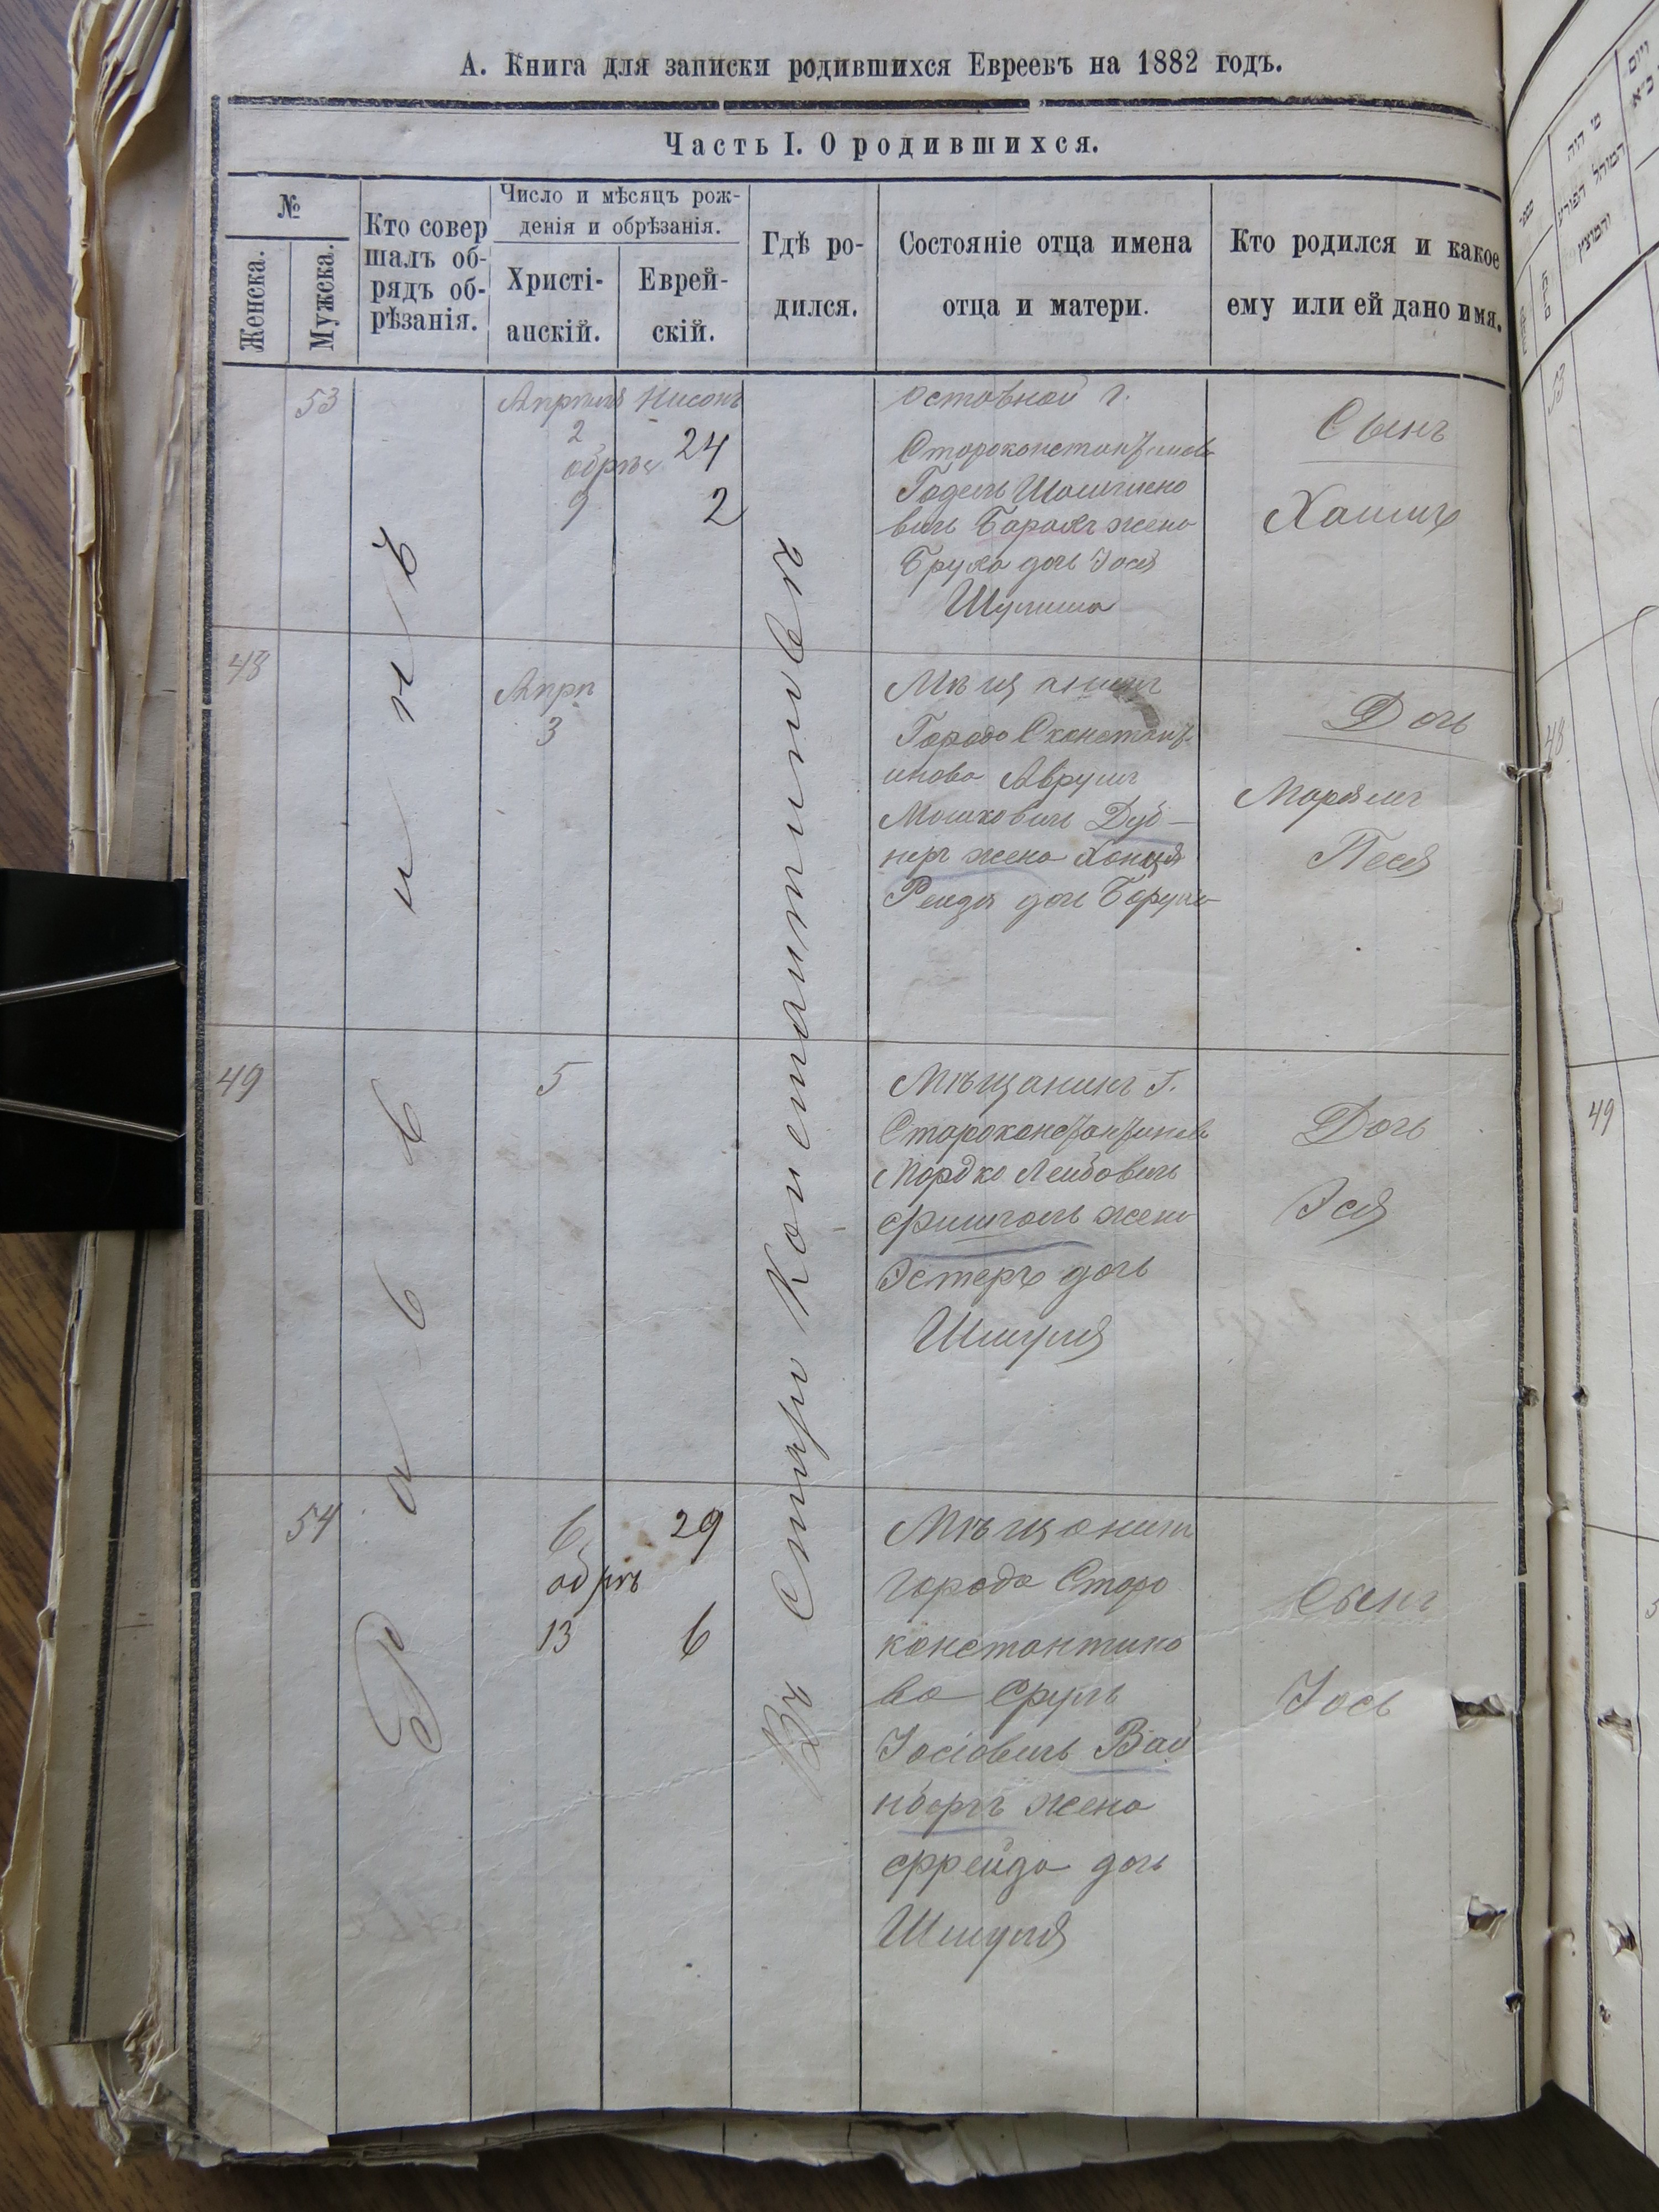 А. Книга для записки родившихся Евреевъ на 1882 годъ.
Часть I. О родившихся.
№
Женска.
Мужска.
Кто совер
шалъ об-
рядъ об-
рѣзанія.
Число и мѣсяцъ рож-
денія и обрѣзанія.
Христі-
анскій.
Еврей-
скій.
Гдѣ ро-
дился.
Состояніе отца имена
отца и матери.
Кто родился и какое
ему или ей дано имя.
Раввинъ
Въ Старо Константиновѣ
53
Апрѣля
2
обрѣз
9
Нисонъ
24
2
остовной г.
Староконстантинова
Годель
вичъ Барахъ жена
Бруха дочь Іося
Сынъ
Хаимъ
48
Апрѣ
3
Мѣщанинъ
Города Сконстант
инова Аврумъ
Мошковичъ Дуб-
неръ жена Хонця
Рейзя дочь Боруха
Дочь
Маріямъ
Песя
49
5
Мѣщанинъ г.
Староконстантинова
Мордко Лейбовичъ
жена
Эстеръ дочь
Шмуля
Дочь
Эся
54
6
обрѣ
13
29
6
Мѣщанинъ
города Старо
константино
ва Сруль
Іосіовичъ Вай
нберъ жена
Фрейда дочь
Шмуля
Сынъ
Іось
53
48
49